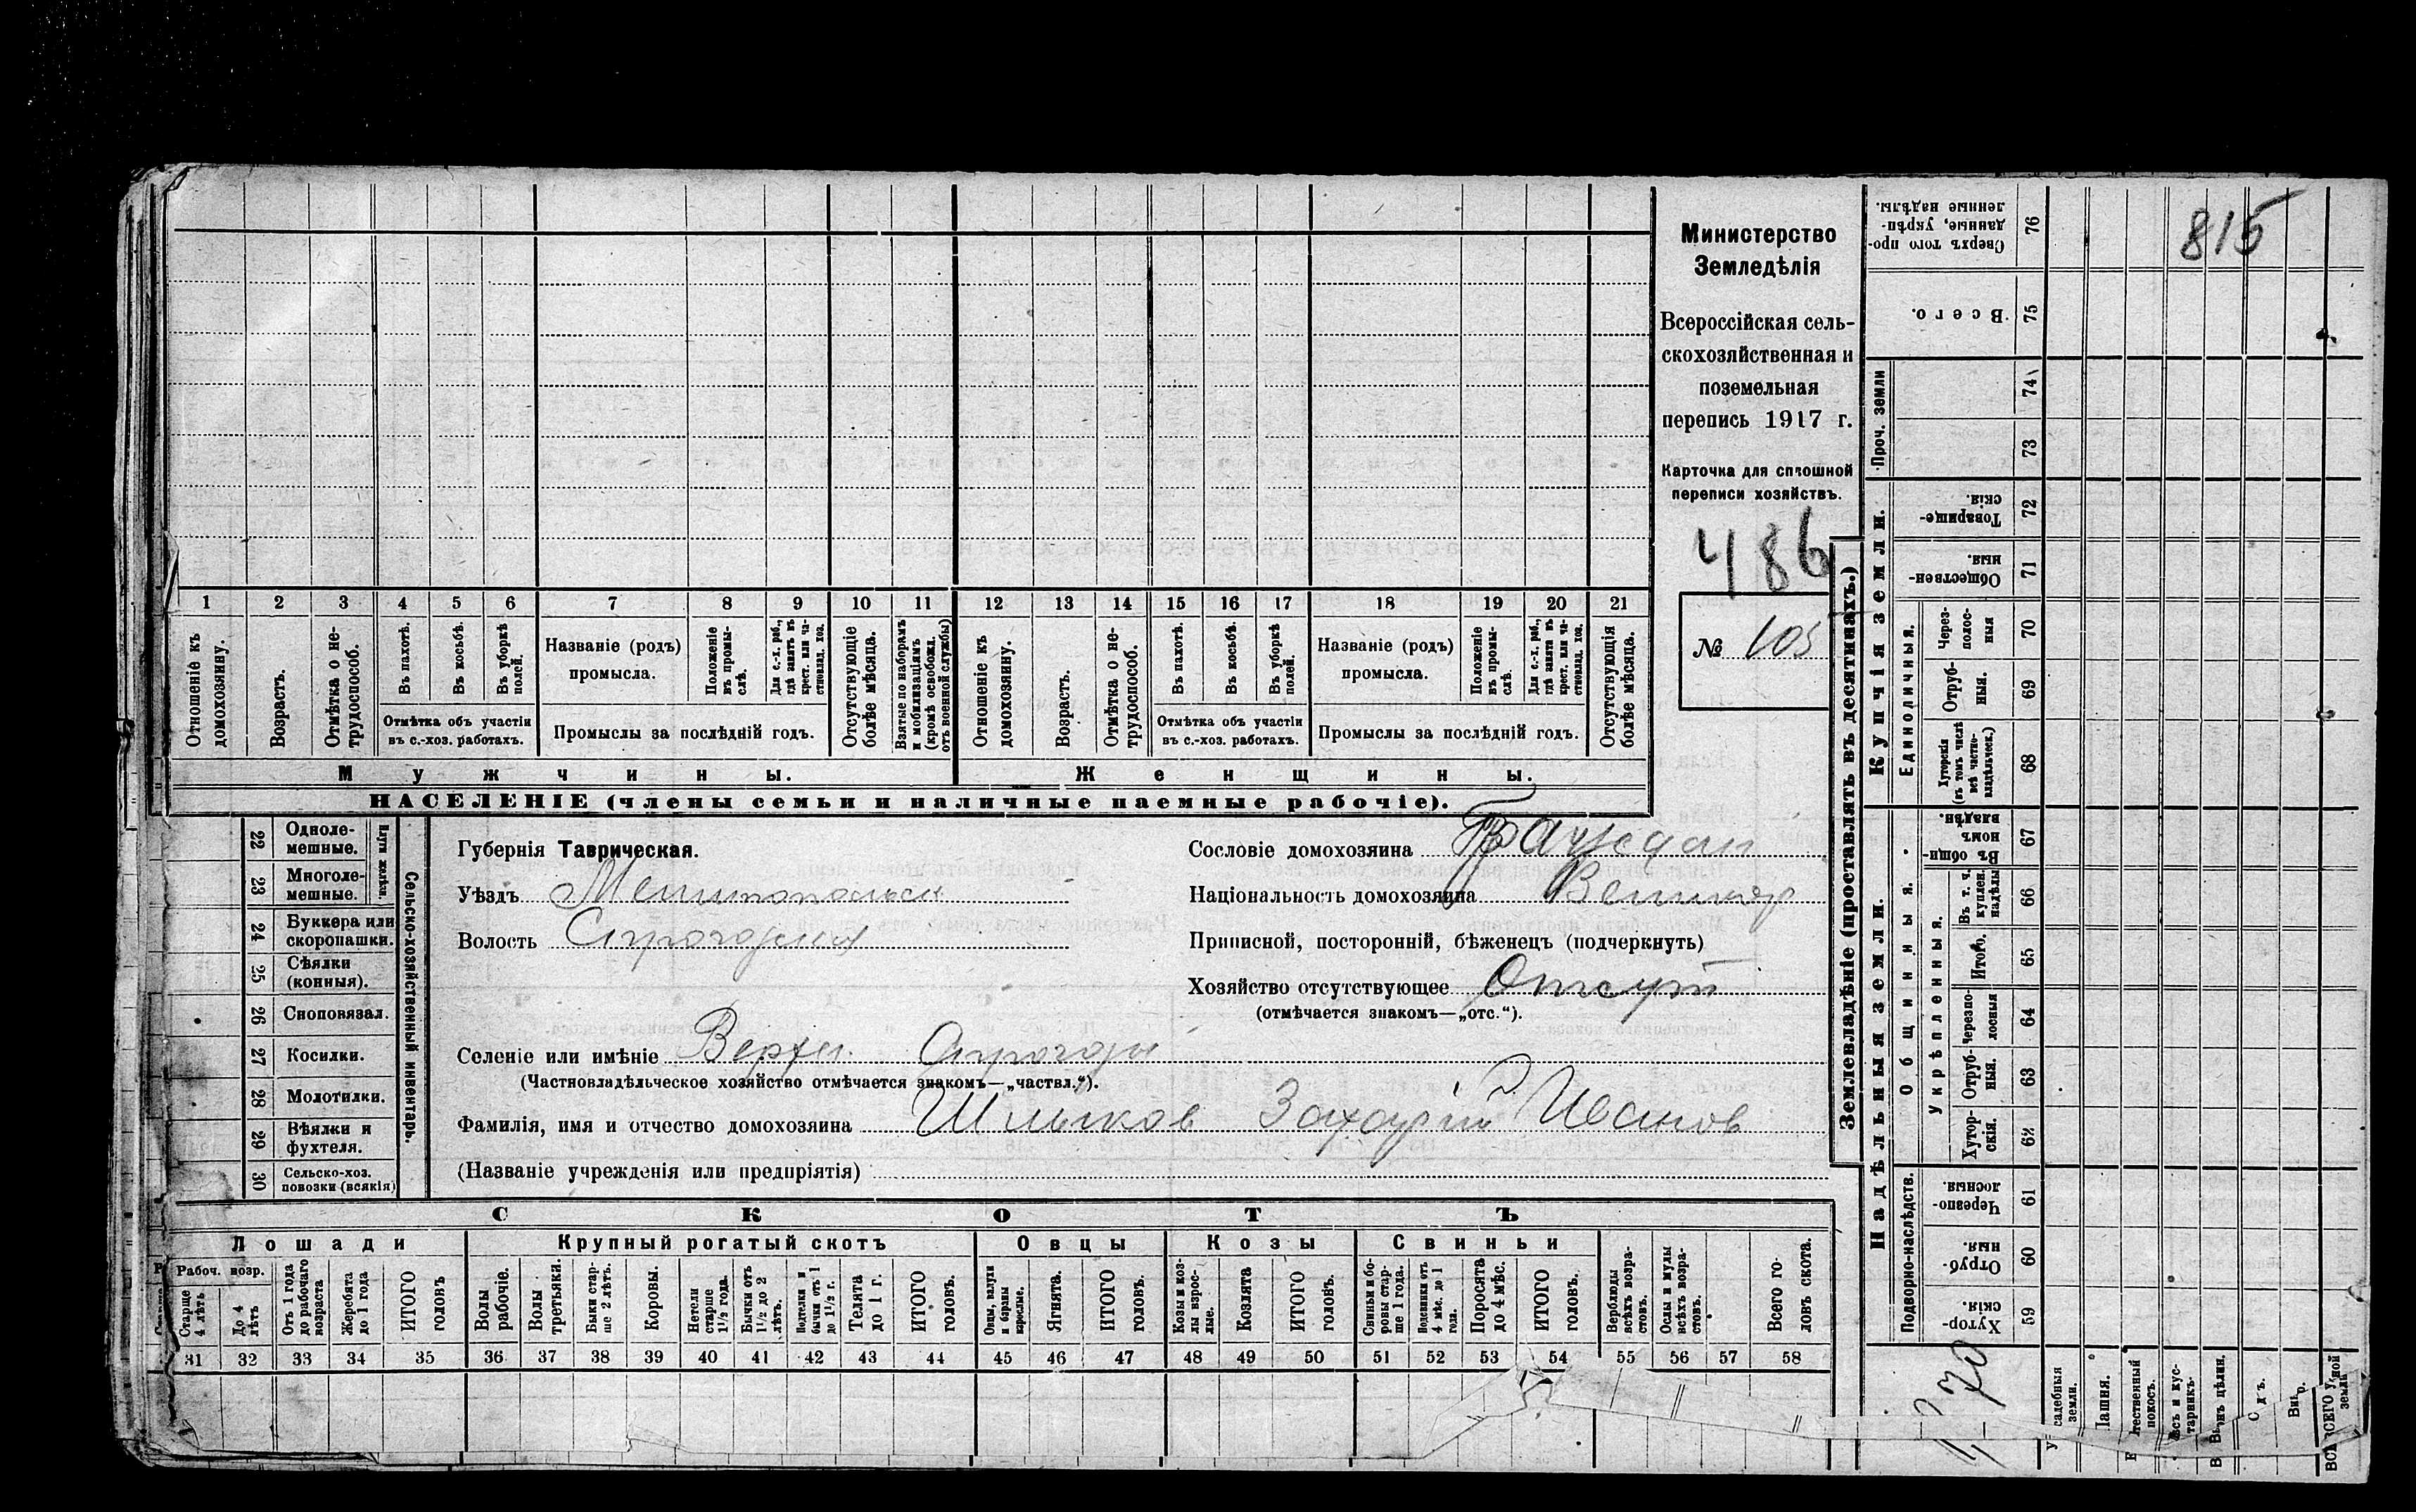 815
Министерство
Земледѣлія
Всероссійская сель-
скохозяйственная и
поземельная
перепись 1917 г.
Карточка для сплошной
переписи хозяйствъ.
486
№ 105
1 2 3 4 5 6 7 8 9 10 11 12 13 14 15 16 17 18 19 20 21
Отношеніе къ домохозяину.
Возрастъ.
Отмѣтка о не-трудоспособ.
Въ пахотѣ.
Въ косьбѣ.
Въ уборкѣ полей.
Отмѣтка объ участіи
въ с.-хоз. работахъ.
Названіе (родъ)
промысла.
Положеніе въ промы-слѣ.
Для с.-х. раб., гдѣ занятъ въ крест. или ча-стновлад. хоз.
Промыслы за послѣдній годъ.
Отсутствующіе болѣе мѣсяца.
Взятые по наборамъ и мобилизаціямъ (кромѣ освобожд. отъ военной службы)
Отношеніе къ домохозяину.
Возрастъ.
Отмѣтка о не-трудоспособ.
Въ пахотѣ.
Въ косьбѣ.
Въ уборкѣ полей.
Отмѣтка объ участіи
въ с.-хоз. работахъ.
Названіе (родъ)
промысла.
Положеніе въ промы-слѣ.
Для с.-х. раб., гдѣ заняти въ крест. или ча-стновлад. хоз.
Промыслы за послѣдній годъ.
Отсутствующія болѣе мѣсяца.
Мужчины.
Женщины.
НАСЕЛЕНІЕ (члены семьи и наличные наемные рабочіе).
22 Одноле-мешные.
23 Многоле-мешные.
Плуги желѣзн.
24 Буккера или скоропашки.
25 Сѣялки (конныя).
26 Сноповязал.
27 Косилки.
28 Молотилки.
29 Вѣялки и фухтеля.
30 Сельско-хоз. повозки (всякія)
Сельско-хозяйственный инвентарь.
Губернія Таврическая.
Уѣздъ Мелитопольск
Волость Строгорская
Сословіе домохозяина Граждан
Національность домохозяина Великор
Приписной, посторонній, бѣженецъ (подчеркнуть)
Хозяйство отсутствующее Отсут
(отмѣчается знакомъ—„отс.“).
Селеніе или имѣніе Верхн.
(Частновладѣльческое хозяйство отмѣчается знакомъ—„частвл.“).
Фамилія, имя и отчество домохозяина Шлыков Захарій Иванов
(Названіе учрежденія или предпріятія)
СКОТЪ
Лошади
Крупный рогатый скотъ
Овцы
Козы
Свиньи
Рабоч. возр.
Старше 4 лѣтъ
До 4 лѣтъ
Отъ 1 года до рабочаго возраста
Жеребята до 1 года
ИТОГО головъ
Волы рабочіе.
Волы третьяки.
Быки стар-ше 2 лѣтъ.
Коровы.
Нетели старше 1½ года.
Бычки отъ 1½ до 2 лѣтъ.
Подтелки и бычки отъ 1 до 1½ г.
Телята до 1 г.
ИТОГО головъ.
Овцы, валухи и бараны взрослые.
Ягнята.
ИТОГО головъ.
Козы и коз-лы взрос-лые.
Козлята
ИТОГО головъ.
Свиньи и бо-ровы стар-ше 1 года.
Подсвинки отъ 4 мѣс. до 1 года.
Поросята до 4 мѣс.
ИТОГО головъ.
Верблюды всѣхъ возра-стовъ.
Ослы и мулы всѣхъ возра-стовъ.
Всего го-ловъ скота.
31 32 33 34 35 36 37 38 39 40 41 42 43 44 45 46 47 48 49 50 51 52 53 54 55 56 57 58
Землевладѣніе (проставлять въ десятинахъ.)
Купчія земли.
Надѣльныя земли.
Проч. земли
Единоличныя.
Общинныя.
Укрѣпленныя.
Подворно-наслѣдств.
Сверхъ того про-данные, укрѣп-ленные надѣлы. 76
Всего. 75
74
73
Товарище-скія. 72
Обществен-ныя. 71
Через-полос-ныя 70
Отруб-ныя. 69
Хуторскія (въ томъ числѣ всѣ частно-владѣльческ.) 68
Въ общин-номъ владѣн. 67
Въ т. ч. куплен. надѣлы 66
Итого. 65
Черезпо-лосныя 64
Отруб-ныя. 63
Хутор-скія. 62
Черезпо-лосныя. 61
Отруб-ныя. 60
Хутор-скія. 59
земли.
Пашня.
покосъ.